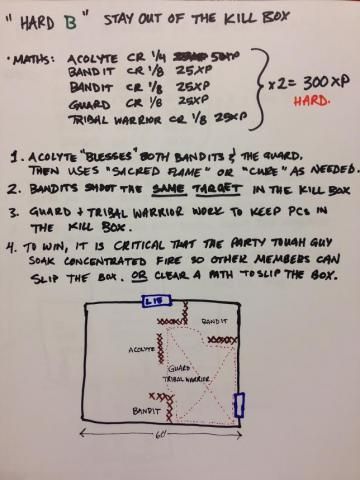 "HARD B" STAY OUT OF THE KILL BOX
• MATHS: ACOLYTE CR 1/4 50XP
BANDIT CR 1/8 25XP
BANDIT CR 1/8 25XP
GUARD CR 1/8 25XP
TRIBAL WARRIOR CR 1/8 25XP
x2= 300XP
HARD.
1. ACOLYTE "BLESSES" BOTH BANDITS & THE GUARD.
THEN USES "SACRED FLAME" OR "CURE" AS NEEDED.
2. BANDITS SHOOT THE SAME TARGET IN THE KILL BOX
3. GUARD + TRIBAL WARRIOR WORK TO KEEP PCS IN
THE KILL BOX.
4. TO WIN, IT IS CRITICAL THAT THE PARTY TOUGH GUY
SOAK CONCENTRATED FIRE SO OTHER MEMBERS CAN
SLIP THE BOX. OR CLEAR A PATH TO SLIP THE BOX.
BANDIT
ACOLYTE
GUARD
TRIBAL WARRIOR
BANDIT
60'